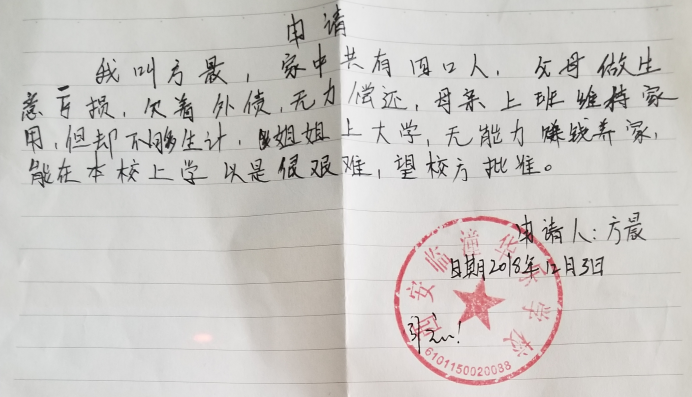 申请
我叫方晨，家中共有四口人，父母做生
意亏损，欠着外债，无力偿还，母亲上班维持家
用，但却不够生计，姐姐上大学，无能力赚钱养家，
能在本校上学以是很艰难，望校方批准。
申请人：方晨
日期2018年12月3日
西安临潼华 学校
6101150020088